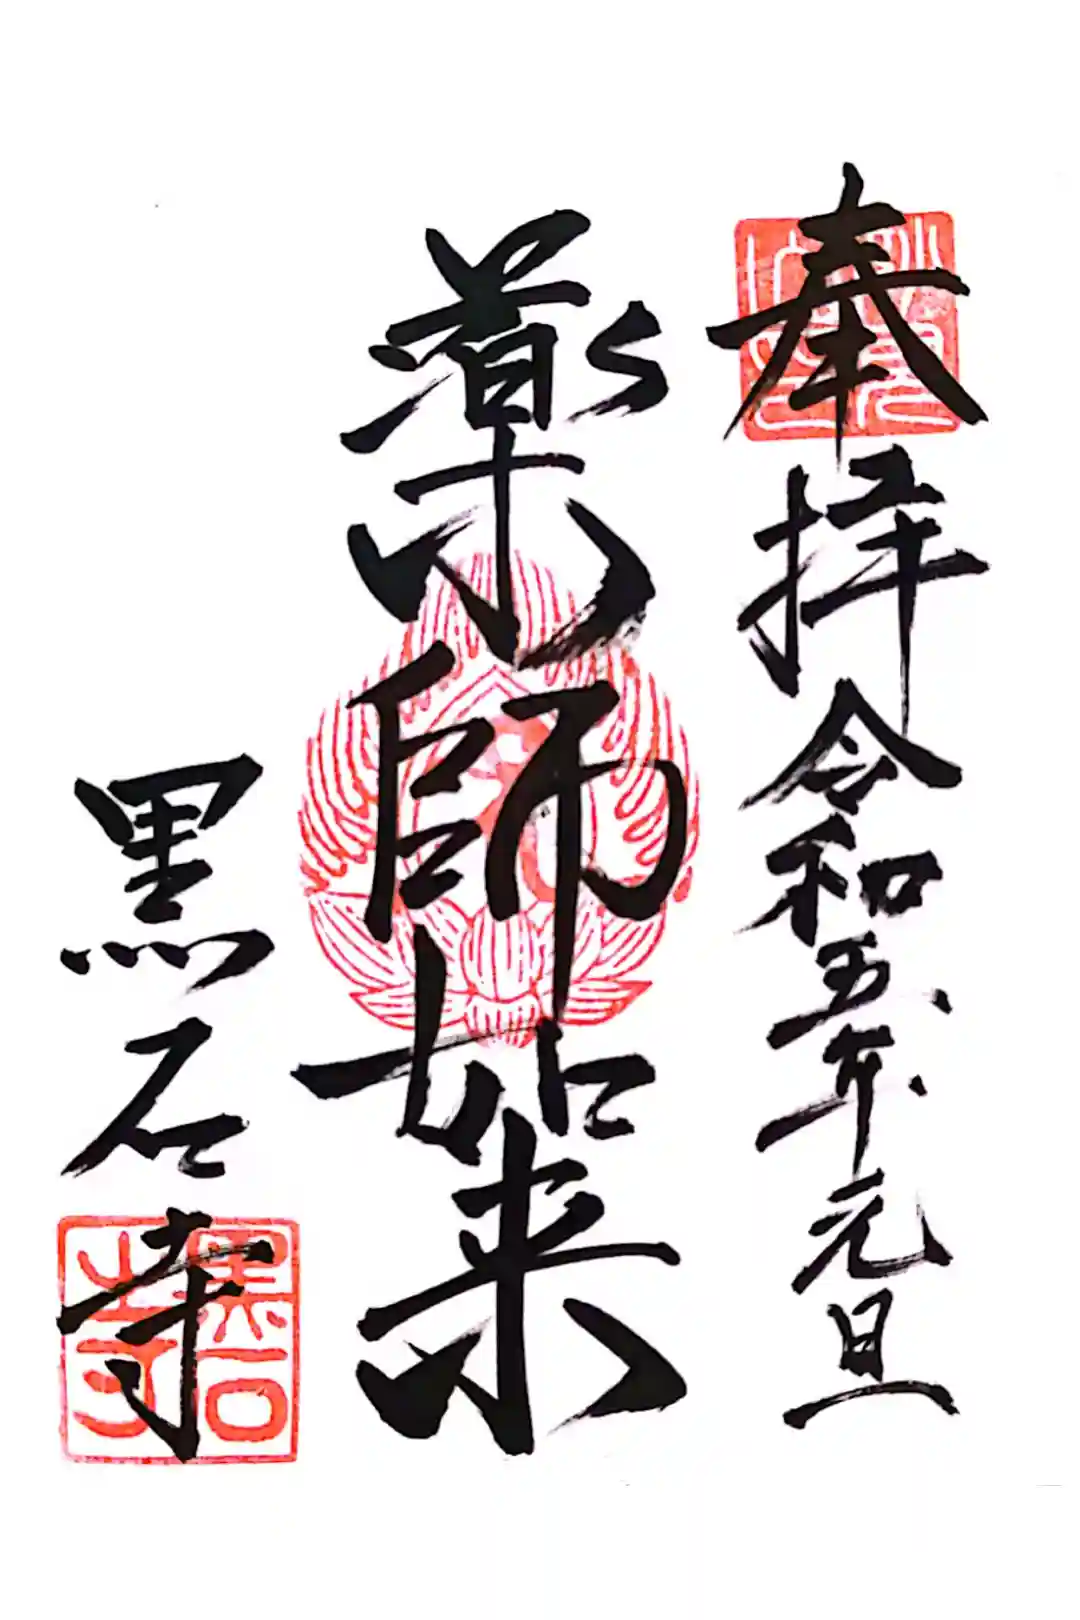 奉拝 令和五年元旦
薬師如来
黒石寺
黒石寺